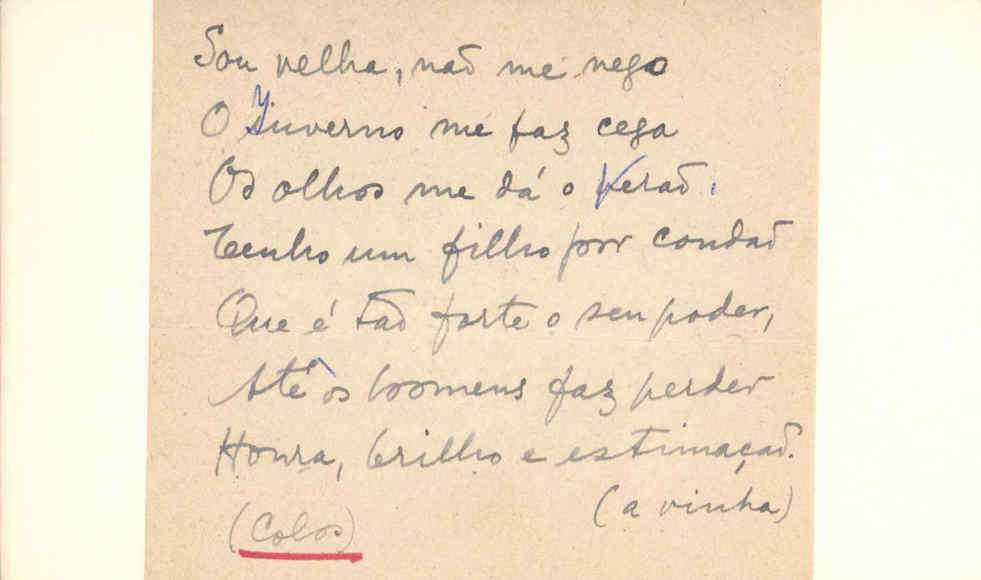 Sou velha, não me nego
O Inverno me faz cega
Os olhos me dá o Verão.
Tenho um filho por condão
Que é tão forte o seu poder,
Até os homens faz perder
Honra, brilho e estimação.
(a vinha)
(Colos)